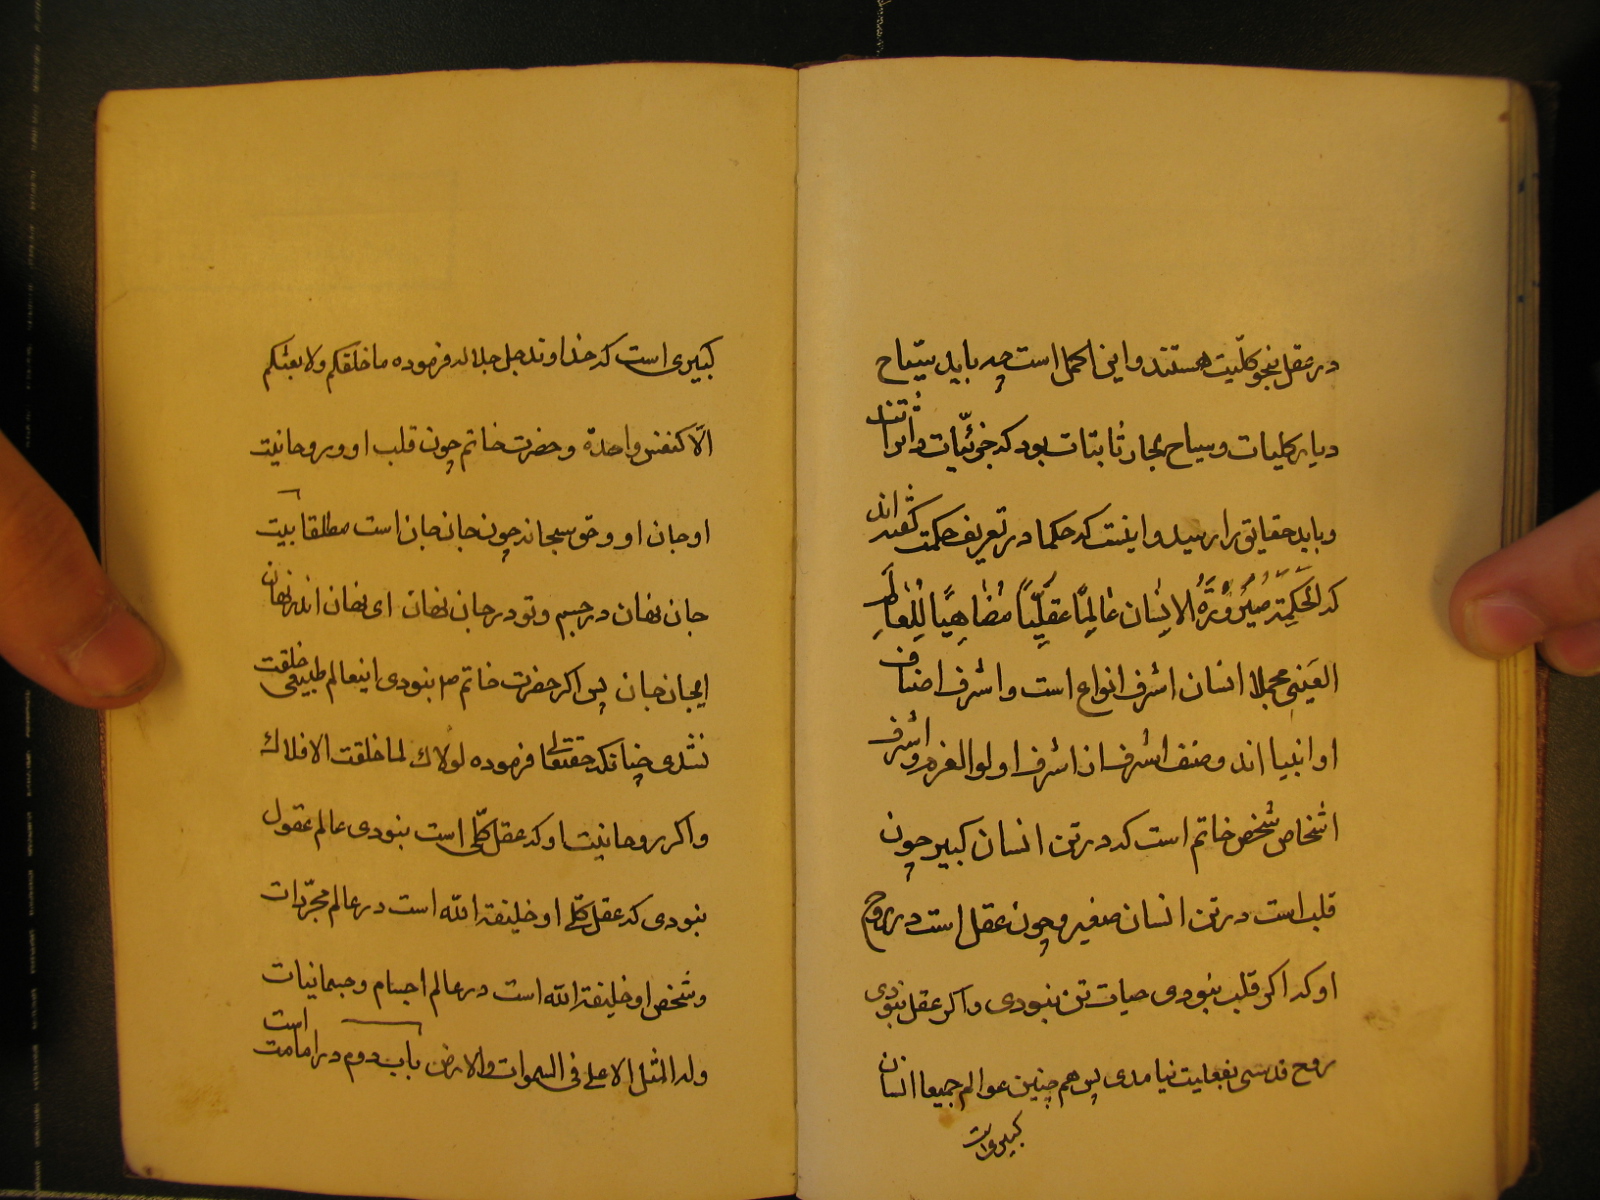 در عقل بنحو کلّیت هستند و این اکمل است چه باید سیّاح
دیار کلیات و سیاح بحار ثابتات بود که جزئیّات داثراتند
و باید حقایق را رسید و اینست که حکما در تعریف حکمت گفته‌اند
که الحَکِمَةَ صَیرُورَةُ الانسان عٰالِمًا عَقلِیّاً مُضٰاهِیًا لِلعٰالَمِ
العَینی مجملا انسان اشرف انواع است و اشرف اصناف
او انبیا اند و صنف اشرف از اشرف اولوالعزم و اشرف
اشخاص شخص خاتم است که در تن انسان کبیر چون
قلب است در تن انسان صغیر و چون عقل است در روح
او که اگر قلب نبودی حیات تن نبودی و اگر عقل نبودی
روح قدسی بفعلیت نیامدی پس هم چنین عوالم جمیعا انسان
کبیری است
کبیری است که خداوند جل جلاله فرموده ما خلقکم ولا بعثکم
الّا کنفس واحدة و حضرت خاتم چون قلب او و روحانیت
او جان او و حق سبحانه چون جان جان است مطلقا بیت
جان نهان در جسم و تو در جان نهان ای نهان اندر نهان
ایجان جان پس اگر حضرت خاتم ص نبودی اینعالم طبیعی خلقت
نشدی چنانکه حقتعالی فرموده لولاك لما خلقت الافلاك
و اگر روحانیت او که عقل کلّی است نبودی عالم عقول
نبودی که عقل کلّی او خلیفة الله است در عالم مجرّدات
و شخص او خلیفة الله است در عالم اجسام و جسمانیات
وله المثل الاعلی فی السموات والارض باب دوم در امامت است